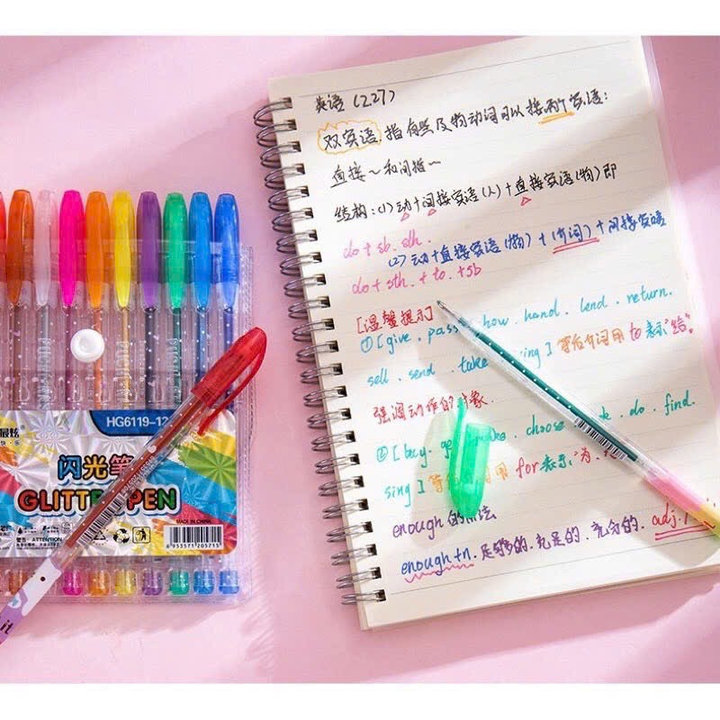 英语(227)
双宾语,指有些及物动词可以接两个宾语:
直接~和间接~
结构:(1)动+间接宾语(人)+直接宾语(物)即
do + sb. sth.
(2)动+直接宾语(物)+(介词)+间接宾语
do + sth. + to. + sb
[温馨提示]
①[give. pass. how. hand. lend. return.
sell. send. take. ing]等后介词用to表示"给"。
强调动作的对象.
② choose. do. find.
sing]用for表示:"为.
enough的
enough+n.足够的.充足的.充分的. adj.
HG6119-12
闪光笔
GLITTER PEN
ATTENTION
MADE IN CHINA